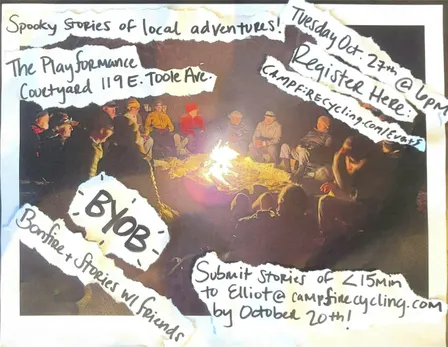 Spooky Stories of local adventures!
Tuesday Oct. 27th @ 6pm
Register Here:
CAMPFIRECYCLING.COM/Events
The Playformance
Courtyard 119 E. Toole Ave.
BYOB
Bonfire + Stories w/ friends
Submit Stories of <15min
to Elliot@campfirecycling.com
by October 20th!